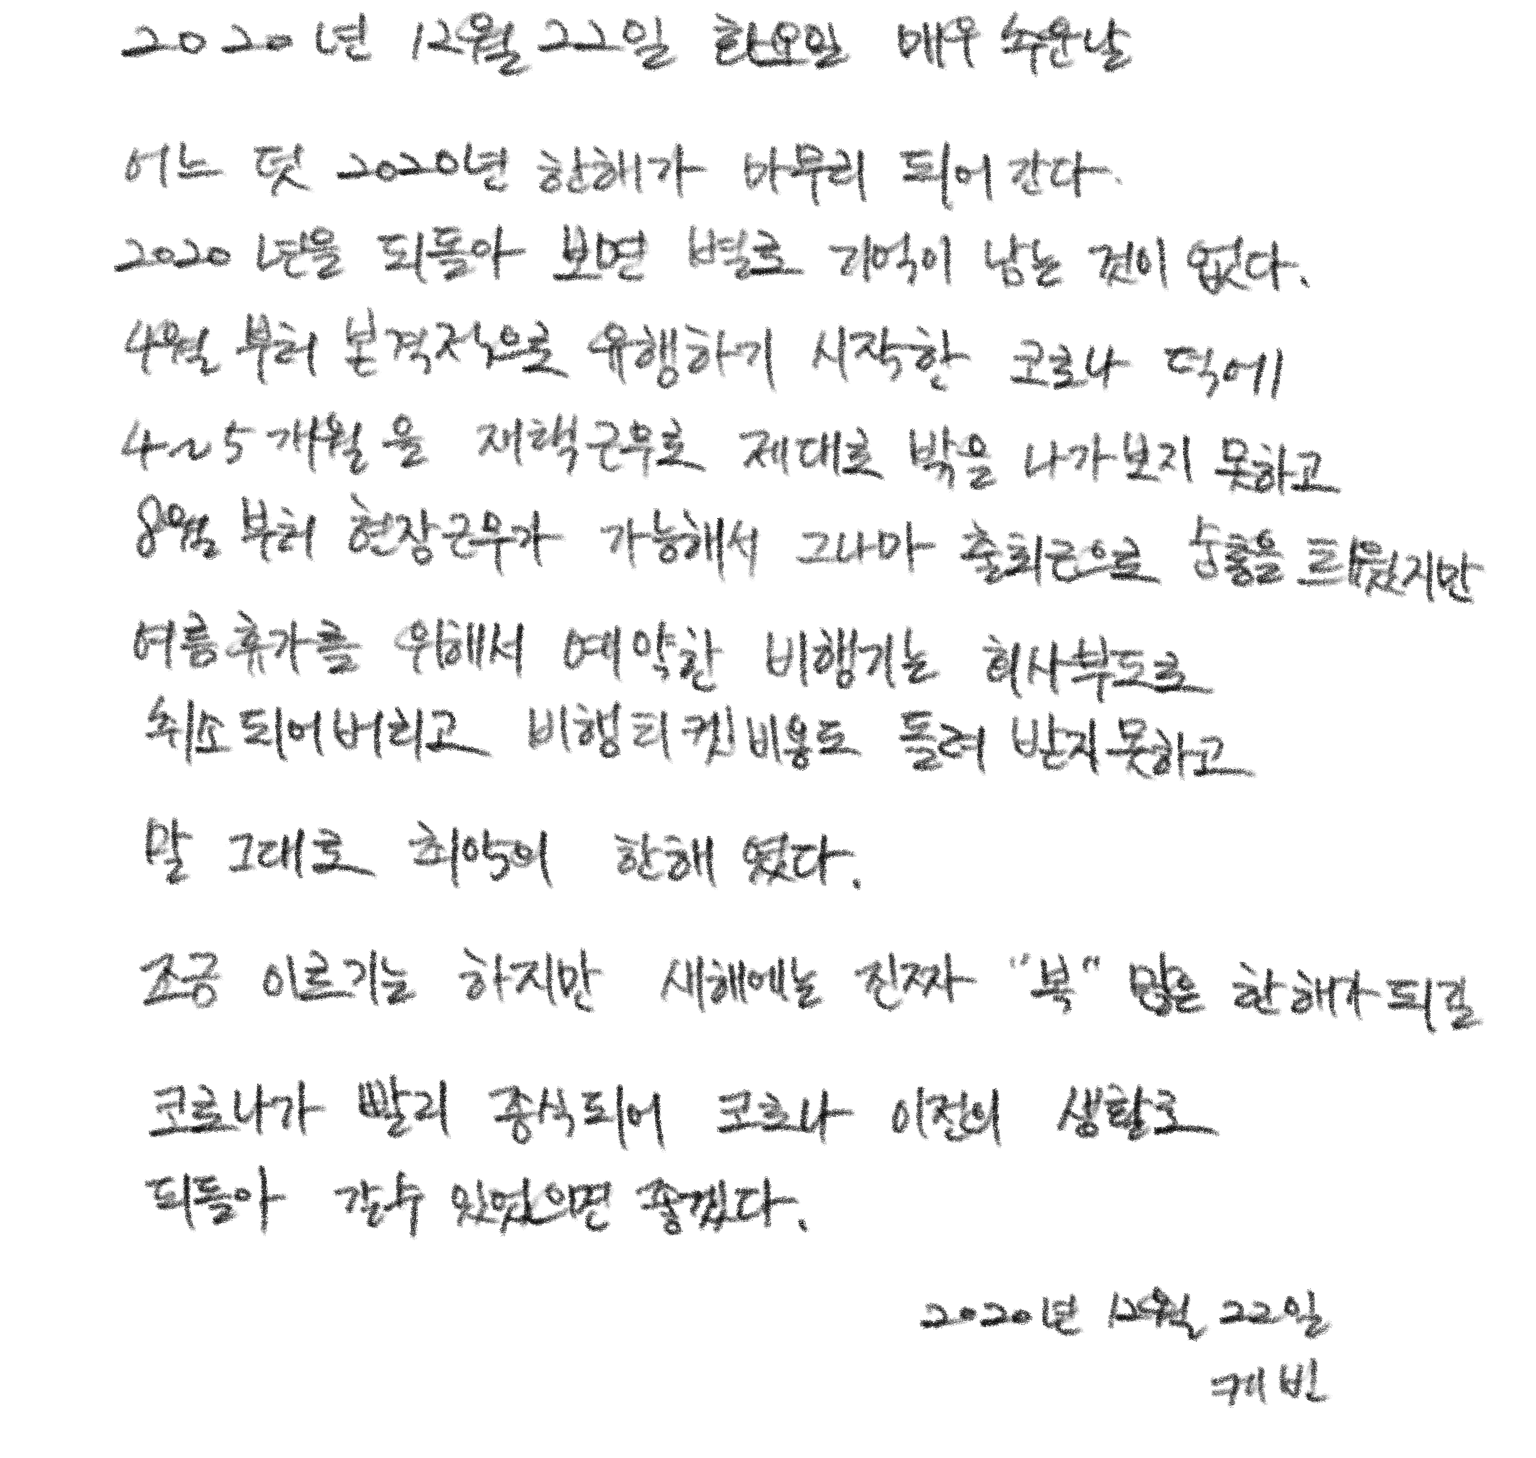 2020년 12월 22일 화요일 매우 추운날
어느 덧 2020년 한해가 마무리 되어 간다.
2020년을 되돌아 보면 별로 기억이 남는 것이 없다.
4월 부터 본격적으로 유행하기 시작한 코로나 덕에
4~5개월을 재택근무로 제대로 밖을 나가보지 못하고
8월 부터 현장근무가 가능해서 그나마 출퇴근으로 숨통을 틔웠지만
여름휴가를 위해서 예약한 비행기는 회사부도로
취소되어버리고 비행티켓비용도 돌려 받지못하고
말 그대로 최악의 한해 였다.
조금 이르기는 하지만 새해에는 진짜 "복" 많은 한해가 되길
코로나가 빨리 종식되어 코로나 이전의 생활로
되돌아 갈수 있었으면 좋겠다.
2020년 12월 22일
케빈